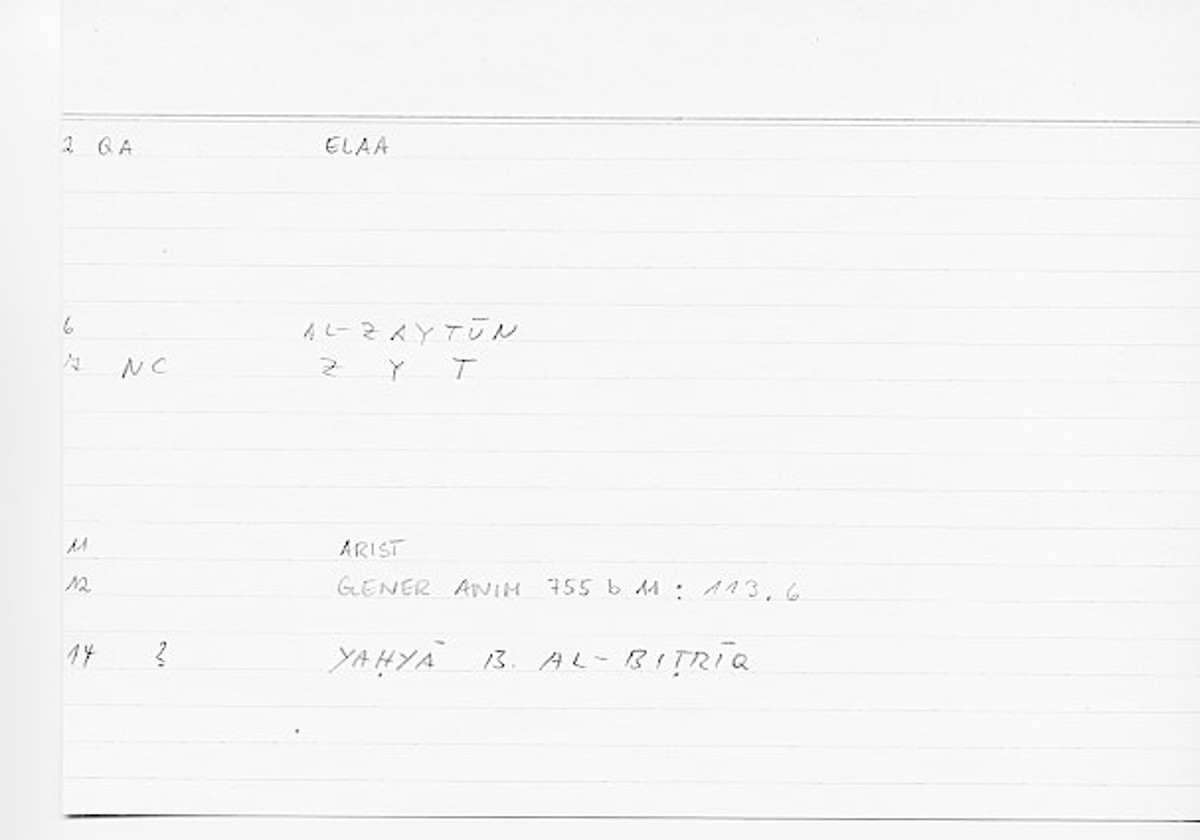 2 QA ELAA
6 AL-ZAYTŪN
7 NC Z Y T
11 ARIST
12 GENER ANIM 755 b 11 : 113.6
14 YAḤYĀ B. AL-BIṬRĪQ